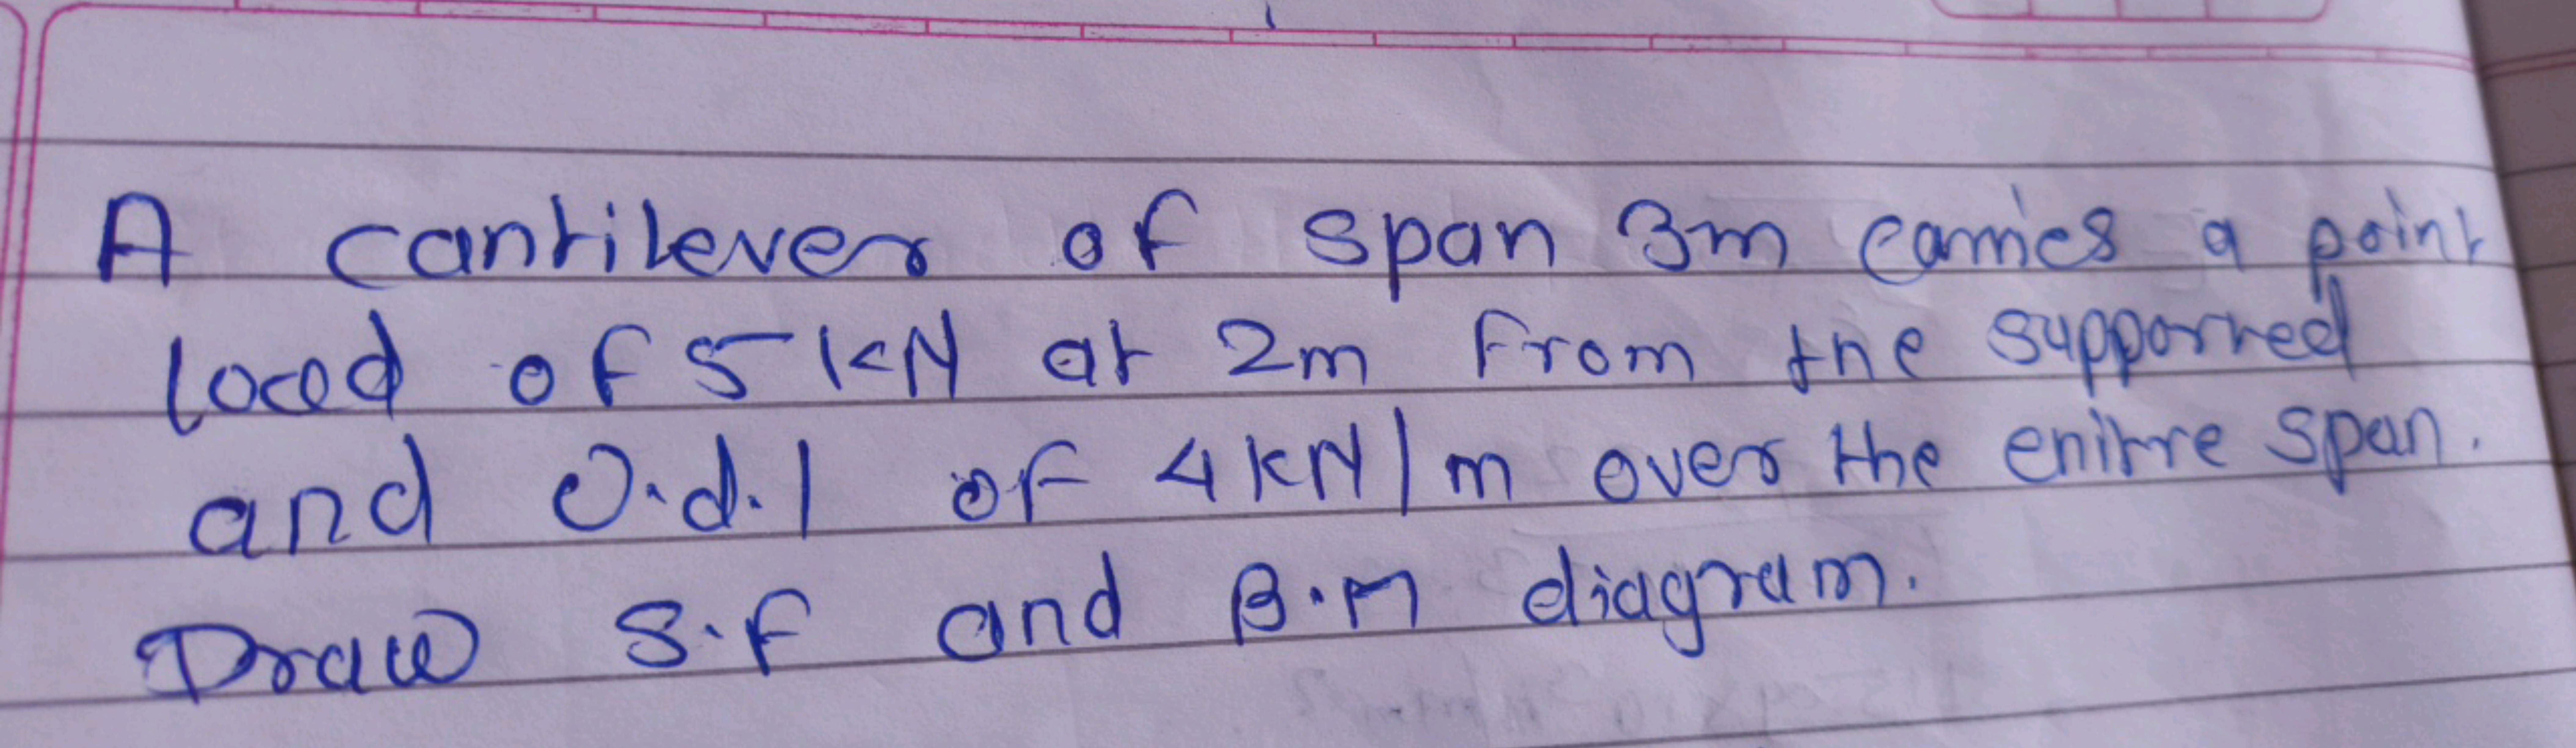 A cantilever of span 3m carries a point
load of 5 kN at 2m from the supported
and U.d.l of 4 kN/m over the enitre span.
Draw S.F and B.M diagram.